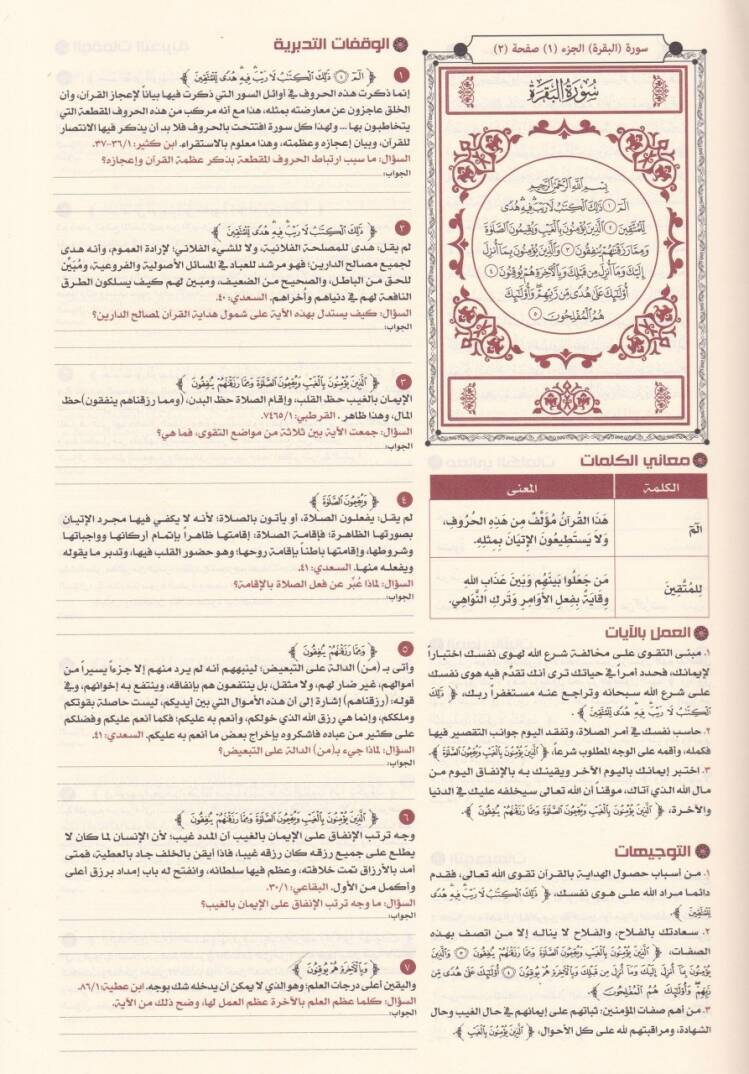 سورة (البقرة) الجزء (١) صفحة (٢)
سُورَةُ البَقَرَةِ
بِسْمِ اللَّهِ الرَّحْمَنِ الرَّحِيمِ
الٓمٓ ١ ذَٰلِكَ الْكِتَٰبُ لَا رَيْبَ فِيهِ هُدًى
لِّلْمُتَّقِينَ ٢ الَّذِينَ يُؤْمِنُونَ بِالْغَيْبِ وَيُقِيمُونَ الصَّلَوٰةَ
وَمِمَّا رَزَقْنَٰهُمْ يُنفِقُونَ ٣ وَالَّذِينَ يُؤْمِنُونَ بِمَا أُنزِلَ
إِلَيْكَ وَمَا أُنزِلَ مِن قَبْلِكَ وَبِالْآخِرَةِ هُمْ يُوقِنُونَ ٤
أُولَٰئِكَ عَلَىٰ هُدًى مِّن رَّبِّهِمْ وَأُولَٰئِكَ
هُمُ الْمُفْلِحُونَ ٥
معاني الكلمات
الكلمة المعنى
الٓمٓ هَذَا القُرآنُ مُؤَلَّفٌ مِن هَذِهِ الحُرُوفِ،
وَلَا يَستَطِيعُونَ الإِتيَانَ بِمِثلِهِ.
لِلمُتَّقِينَ مَن جَعَلُوا بَينَهُم وَبَينَ عَذَابِ اللهِ
وِقَايَةً بِفِعلِ الأَوَامِرِ وَتَركِ النَّوَاهِي.
العمل بالآيات
١. مبنى التقوى على مخالفة شرع الله لهوى نفسك اختباراً
لإيمانك، فحدد أمراً في حياتك ترى أنك تقدِّم فيه هوى نفسك
على شرع الله سبحانه وتراجع عنه مستغفراً ربك، ﴿ ذَٰلِكَ
الْكِتَٰبُ لَا رَيْبَ فِيهِ هُدًى لِّلْمُتَّقِينَ ﴾.
٢. حاسب نفسك في أمر الصلاة، وتفقد اليوم جوانب التقصير فيها
فكمله، وأقمه على الوجه المطلوب شرعاً، ﴿ الَّذِينَ يُؤْمِنُونَ بِالْغَيْبِ وَيُقِيمُونَ الصَّلَوٰةَ ﴾.
٣. اختبر إيمانك باليوم الآخر ويقينك به بالإنفاق اليوم من
مال الله الذي آتاك، موقناً أن الله تعالى سيخلفه عليك في الدنيا
والآخرة، ﴿ الَّذِينَ يُؤْمِنُونَ بِالْغَيْبِ وَيُقِيمُونَ الصَّلَوٰةَ وَمِمَّا رَزَقْنَٰهُمْ يُنفِقُونَ ﴾.
التوجيهات
١. من أسباب حصول الهداية بالقرآن تقوى الله تعالى، فقدم
دائما مراد الله على هوى نفسك، ﴿ ذَٰلِكَ الْكِتَٰبُ لَا رَيْبَ فِيهِ هُدًى
لِّلْمُتَّقِينَ ﴾.
٢. سعادتك بالفلاح، والفلاح لا يناله إلا من اتصف بهذه
الصفات، ﴿ الَّذِينَ يُؤْمِنُونَ بِالْغَيْبِ وَيُقِيمُونَ الصَّلَوٰةَ وَمِمَّا رَزَقْنَٰهُمْ يُنفِقُونَ ٣ وَالَّذِينَ
يُؤْمِنُونَ بِمَا أُنزِلَ إِلَيْكَ وَمَا أُنزِلَ مِن قَبْلِكَ وَبِالْآخِرَةِ هُمْ يُوقِنُونَ ٤ أُولَٰئِكَ عَلَىٰ هُدًى مِّن
رَّبِّهِمْ وَأُولَٰئِكَ هُمُ الْمُفْلِحُونَ ﴾
٣. من أهم صفات المؤمنين: ثباتهم على إيمانهم في حال الغيب وحال
الشهادة، ومراقبتهم لله على كل الأحوال، ﴿ الَّذِينَ يُؤْمِنُونَ بِالْغَيْبِ ﴾.
الوقفات التدبرية
١ ﴿ الٓمٓ ١ ذَٰلِكَ الْكِتَٰبُ لَا رَيْبَ فِيهِ هُدًى لِّلْمُتَّقِينَ ﴾
إنما ذكرت هذه الحروف في أوائل السور التي ذكرت فيها بياناً لإعجاز القرآن، وأن
الخلق عاجزون عن معارضته بمثله، هذا مع أنه مركب من هذه الحروف المقطعة التي
يتخاطبون بها ... ولهذا كل سورة افتتحت بالحروف فلا بد أن يذكر فيها الانتصار
للقرآن، وبيان إعجازه وعظمته، وهذا معلوم بالاستقراء. ابن كثير: ٣٦/١-٣٧.
السؤال: ما سبب ارتباط الحروف المقطعة بذكر عظمة القرآن وإعجازه؟
الجواب:
٢ ﴿ ذَٰلِكَ الْكِتَٰبُ لَا رَيْبَ فِيهِ هُدًى لِّلْمُتَّقِينَ ﴾
لم يقل: هدى للمصلحة الفلانية، ولا للشيء الفلاني؛ لإرادة العموم، وأنه هدى
لجميع مصالح الدارين؛ فهو مرشد للعباد في المسائل الأصولية والفروعية، ومُبَيِّن
للحق من الباطل، والصحيح من الضعيف، ومبين لهم كيف يسلكون الطرق
النافعة لهم في دنياهم وأُخراهم. السعدي: ٤٠.
السؤال: كيف يستدل بهذه الآية على شمول هداية القرآن لمصالح الدارين؟
الجواب:
٣ ﴿ الَّذِينَ يُؤْمِنُونَ بِالْغَيْبِ وَيُقِيمُونَ الصَّلَوٰةَ وَمِمَّا رَزَقْنَٰهُمْ يُنفِقُونَ ﴾
الإيمان بالغيب حظ القلب، وإقام الصلاة حظ البدن، (ومما رزقناهم ينفقون) حظ
المال، وهذا ظاهر . القرطبي: ٧٤٦٥/١.
السؤال: جمعت الآية بين ثلاثة من مواضع التقوى، فما هي؟
الجواب:
٤ ﴿ وَيُقِيمُونَ الصَّلَوٰةَ ﴾
لم يقل: يفعلون الصلاة، أو يأتون بالصلاة؛ لأنه لا يكفي فيها مجرد الإتيان
بصورتها الظاهرة؛ فإقامة الصلاة: إقامتها ظاهراً بإتمام أركانها وواجباتها
وشروطها، وإقامتها باطناً بإقامة روحها؛ وهو حضور القلب فيها، وتدبر ما يقوله
ويفعله منها. السعدي: ٤١.
السؤال: لماذا عُبِّر عن فعل الصلاة بالإقامة؟
الجواب:
٥ ﴿ وَمِمَّا رَزَقْنَٰهُمْ يُنفِقُونَ ﴾
وأتى بـ (من) الدالة على التبعيض؛ لينبههم أنه لم يرد منهم إلا جزءاً يسيراً من
أموالهم، غير ضار لهم، ولا مثقل، بل ينتفعون هم بإنفاقه، وينتفع به إخوانهم، وفي
قوله: (رزقناهم) إشارة إلى أن هذه الأموال التي بين أيديكم، ليست حاصلة بقوتكم
وملككم، وإنما هي رزق الله الذي خولكم، وأنعم به عليكم؛ فكما أنعم عليكم وفضلكم
على كثير من عباده فاشكروه بإخراج بعض ما أنعم به عليكم. السعدي: ٤١.
السؤال: لماذا جيء بـ(من) الدالة على التبعيض؟
الجواب:
٦ ﴿ الَّذِينَ يُؤْمِنُونَ بِالْغَيْبِ وَيُقِيمُونَ الصَّلَوٰةَ وَمِمَّا رَزَقْنَٰهُمْ يُنفِقُونَ ﴾
وجه ترتب الإنفاق على الإيمان بالغيب أن المدد غيب؛ لأن الإنسان لما كان لا
يطلع على جميع رزقه كان رزقه غيبا، فإذا أيقن بالخلف جاد بالعطية، فمتى
أمد بالأرزاق تمت خلافته، وعظم فيها سلطانه، وانفتح له باب إمداد برزق أعلى
وأكمل من الأول. البقاعي: ٣٠/١.
السؤال: ما وجه ترتب الإنفاق على الإيمان بالغيب؟
الجواب:
٧ ﴿ وَبِالْآخِرَةِ هُمْ يُوقِنُونَ ﴾
واليقين أعلى درجات العلم؛ وهو الذي لا يمكن أن يدخله شك بوجه. ابن عطية: ٨٦/١.
السؤال: كلما عظم العلم بالآخرة عظم العمل لها، وضح ذلك من الآية.
الجواب: